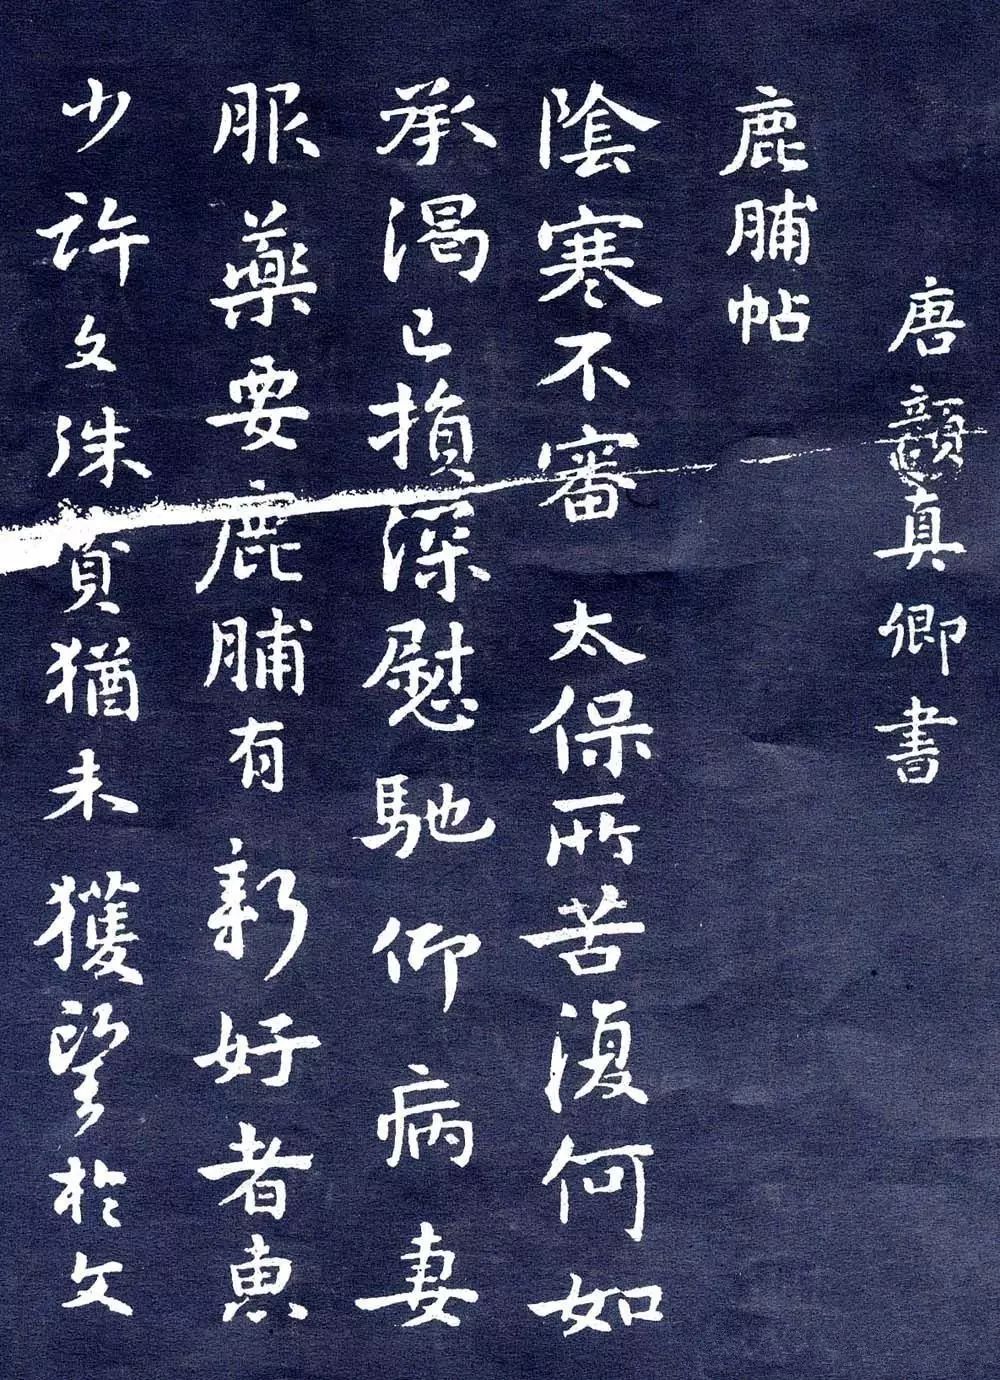 唐顔真卿書
鹿脯帖
陰寒不審太保所苦復何如
承渴已損深慰馳仰病妻
服藥要鹿脯有新好者恵
少許文殊䔈猶未獲望於文